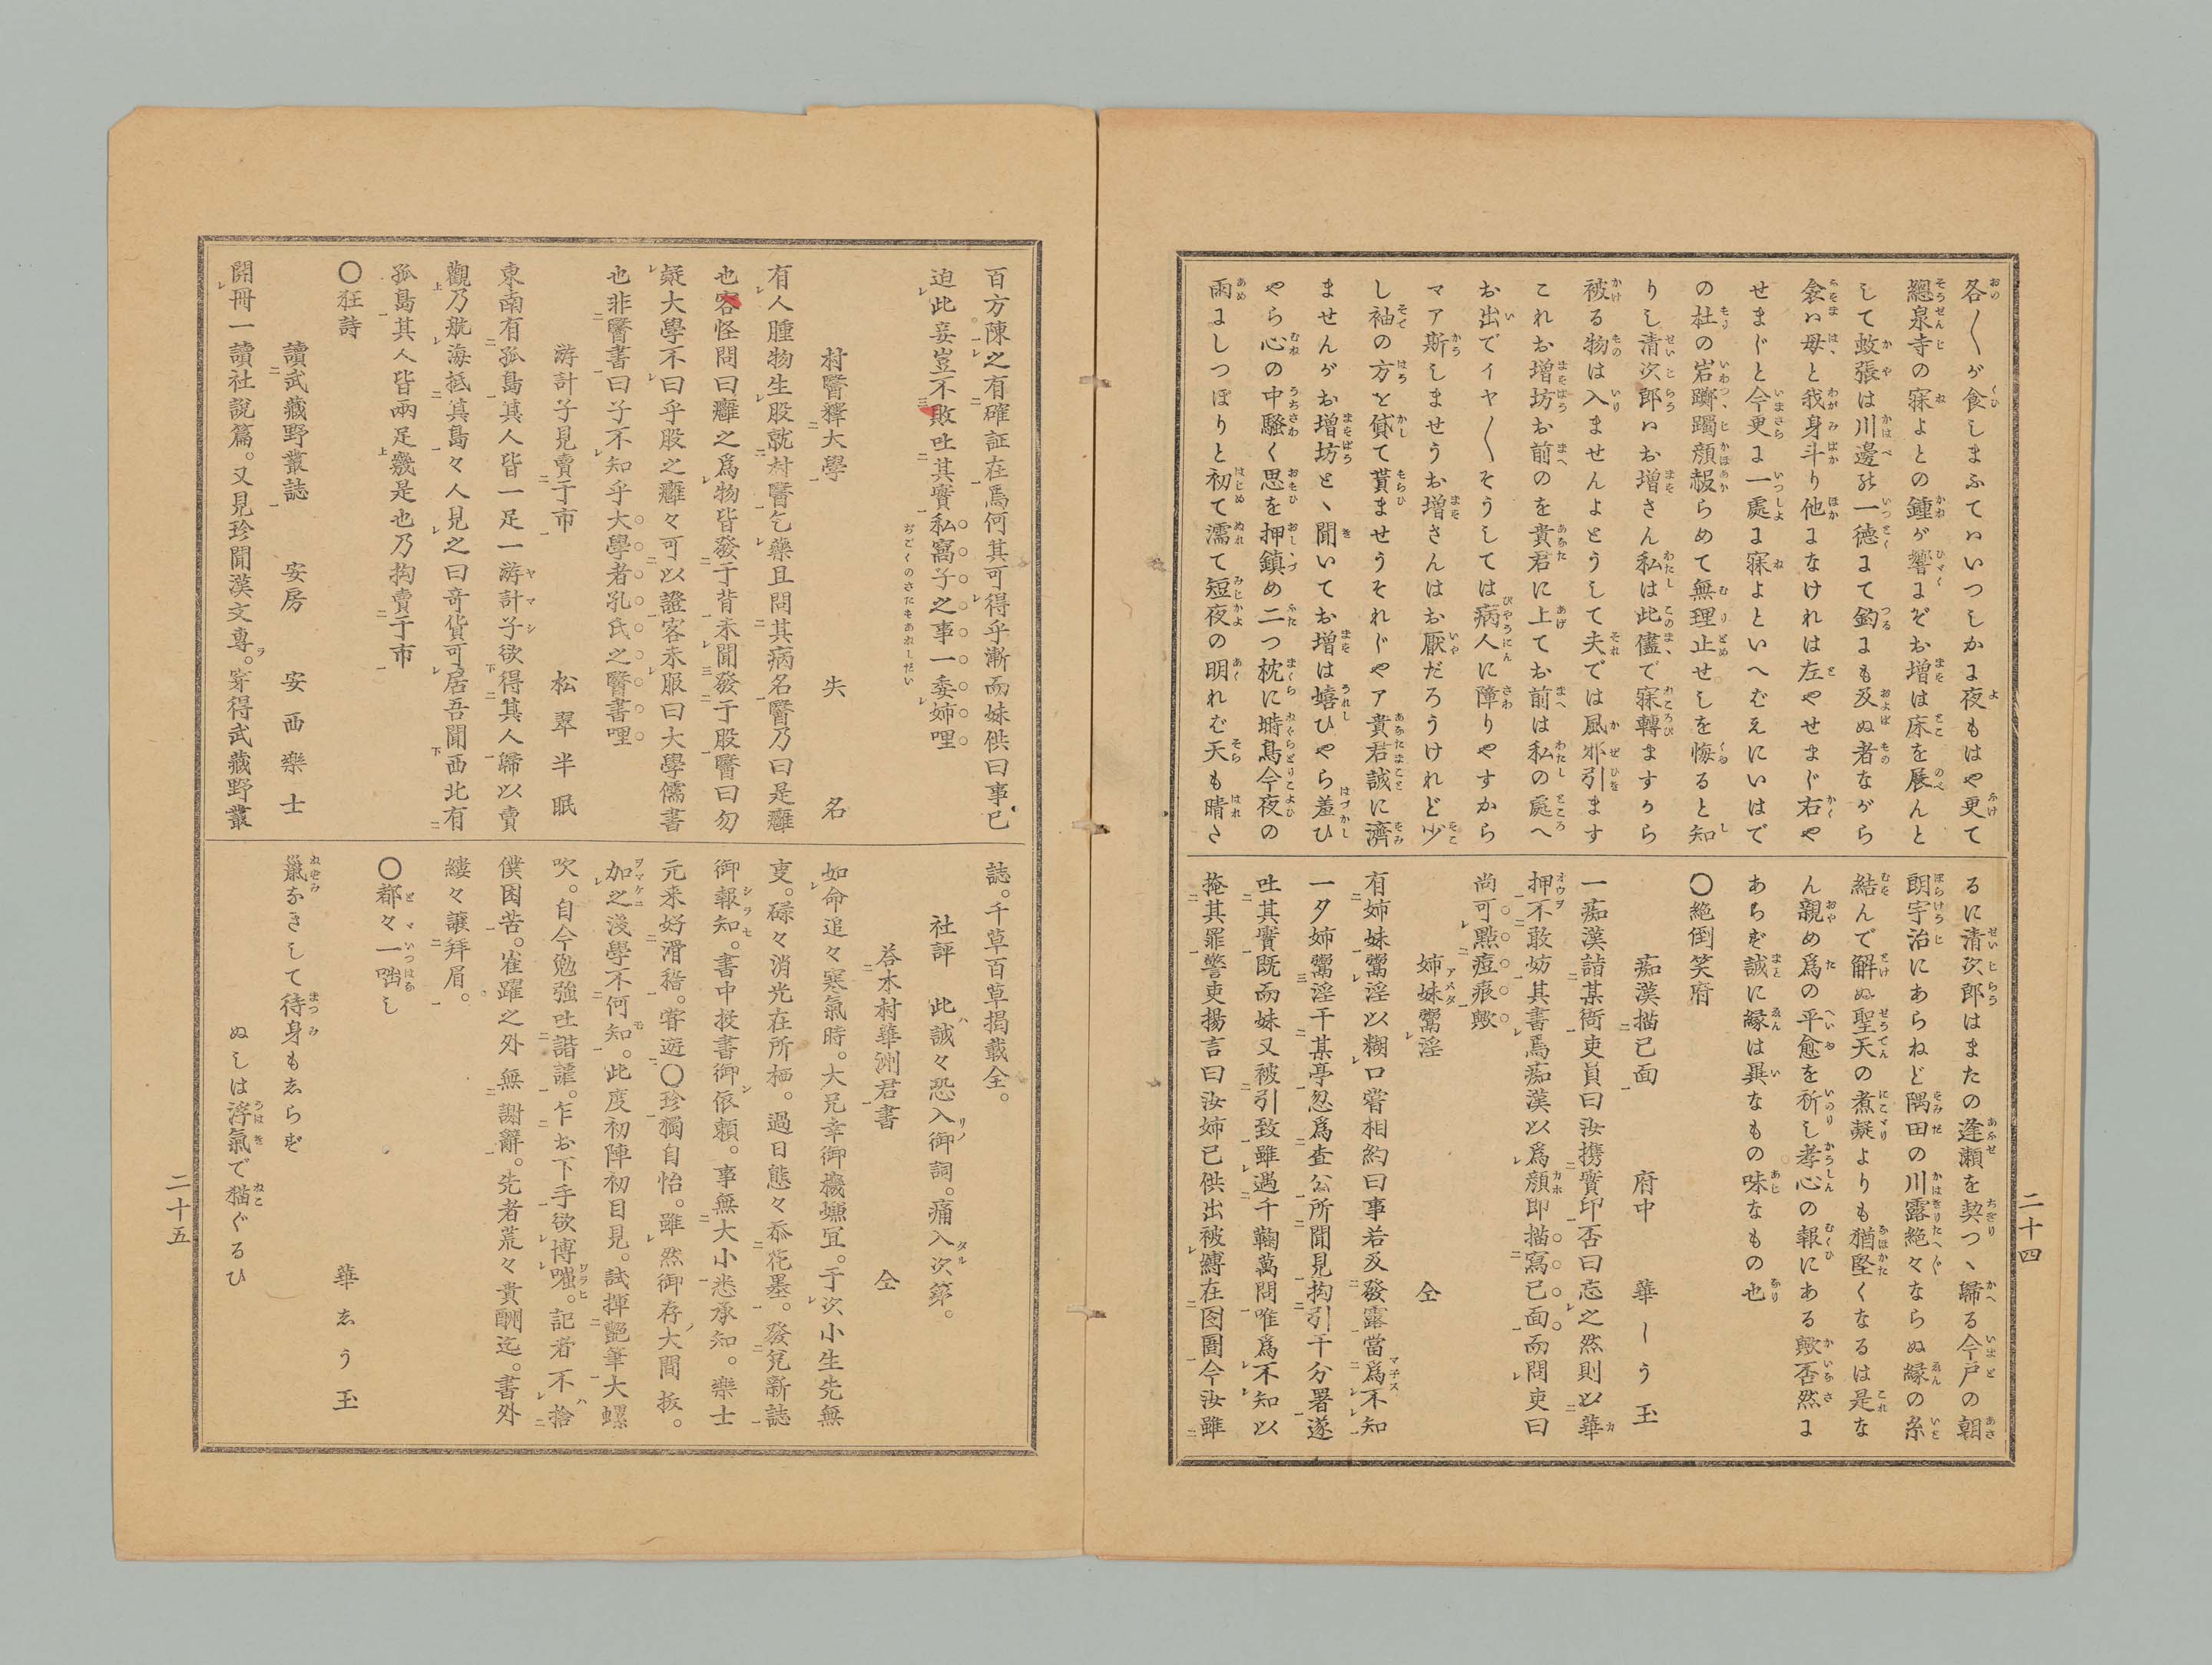 各〳〵が食しまふてハいつしかま夜もはや更て
總泉寺の寐よとの鍾が響まぞお增は床を展んと
して蚊張は川邊の一德まて釣まも及ぬ者ながら
衾ハ毋と我身斗り他まなけれは左やせまじ右や
せまじと今更ま一處ま寐よといへむえにいはで
の杜の岩躑躅顔赧らめて無理止せしを悔ると知
りし清次郎ハお增さん私は此儘で寐轉ますから
被る物は入ませんよとうして夫では風邪引ます
これお增坊お前のを貴君に上てお前は私の處へ
お出でイヤ〳〵そうしては病人に障りやすから
マア斯しませうお增さんはお厭だろうけれど少
し袖の方を貸て貰ませうそれじやア貴君誠に濟
ませんがお增坊と、聞いてお增は嬉ひやら羞ひ
やら心の中騷く思を押鎮め二つ枕に塒鳥今夜の
雨ましつぽりと初て濡て短夜の明れむ天も晴さ
るに清次郎はまたの逢瀬を契つ、歸る今戸の朝
朗宇治にあらねど隅田の川霧絶々ならぬ縁の糸
結んで解ぬ聖天の煮凝よりも猶堅くなるは是な
ん親め爲の平愈を祈し孝心の報にある歟否然ま
あらむ誠に縁は異なもの味なもの也
〇絶倒笑府
痴漢描己面　府中　華しう玉
一痴漢詣某衙吏員曰汝携實印否曰忘之然則以華
押不敢妨其書焉痴漢以爲顏即描寫己面而問吏曰
尚可點痘痕歟
姉妹鬻淫　仝
有姉妹鬻淫以糊口嘗相約曰事若及發露當爲不知
一夕姉鬻淫于某亭忽爲査公所聞見拘引于分署遂
吐其實既而妹又被引致雖遇千鞫萬問唯爲不知以
掩其罪警吏揚言曰汝姉已供出被縛在囹圄今汝雖
二十四
百方陳之有確証在焉何其可得乎漸而妹供曰事已
迫此妾豈不敗吐其實私窩子之事一委姉哩
村醫釋大學　失名
有人腫物生股就村醫乞藥且問其病名醫乃曰是癰
也客怪問曰癰之爲物皆發于背未聞發于股醫曰勿
疑大學不曰乎股之癰々可以證客未服曰大學儒書
也非醫書曰子不知乎大學者孔氏之醫書哩
游計子見賣于市　松翠半眠
東南有孤島其人皆一足一游計子欲得其人歸以賣
觀乃航海抵其島々人見之曰奇貨可居吾聞西北有
孤島其人皆兩足幾是也乃拘賣于市
〇狂詩
讀武藏野叢誌　安房　安西樂士
開冊一讀社說篇。又見珍聞漢文專。穿得武藏野叢
誌。千草百草揭載全。
社評　此誠々恐入御詞。痛入次第。
荅木村華渊君書　仝
如命追々寒氣時。大兄幸御機嫌宜。于次小生先無
叓。碌々消光在所栖。過日態々忝花墨。發兌新誌
御報知。書中投書御依頼。事無大小悉承知。樂士
元来好滑稽。甞遊〇珍獨自怡。雖然御存大間拔。
加之淺學不何知。此度初陣初目見。試揮艶筆大螺
吹。自今勉強吐諧謔。乍お下手欲博嗤。記者不捨
僕困苦。雀躍之外無謝辭。先者荒々貴酬迄。書外
縷々讓拜眉。
〇都々一咄し
華ゑう玉
鼡なきして待身もゑらむ
ぬしは浮氣で猫ぐるひ
二十五